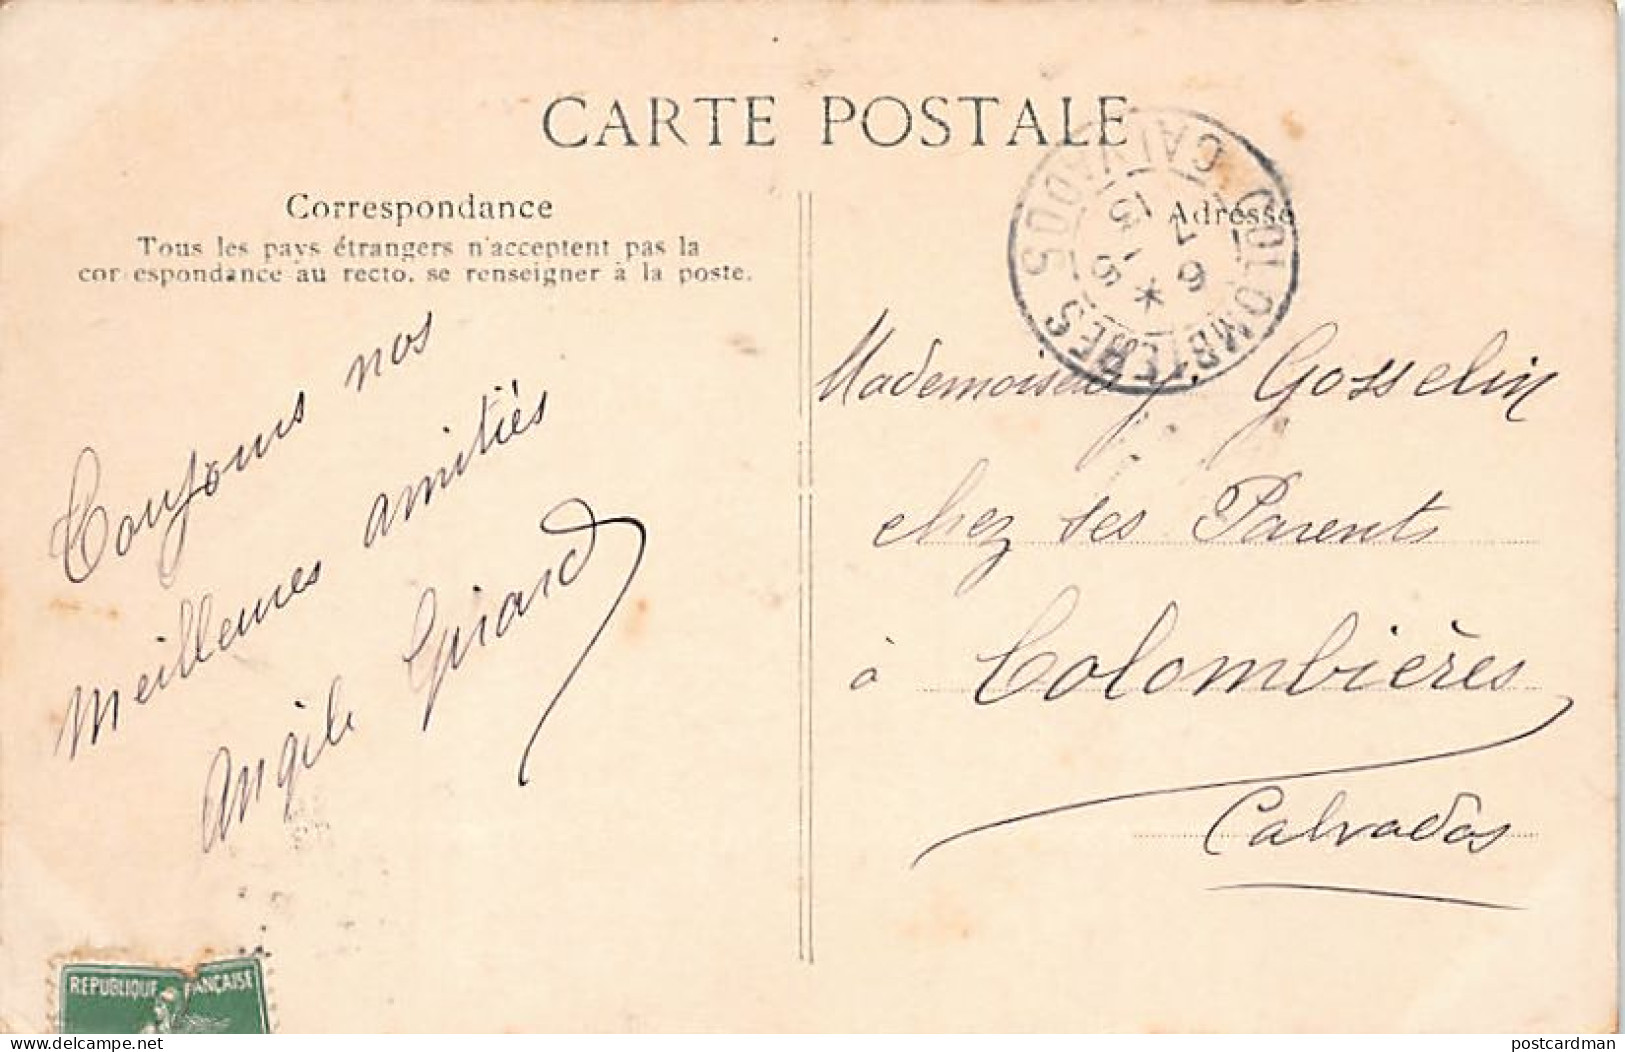 CARTE POSTALE
Correspondance
Tous les pays étrangers n'acceptent pas la
cor espondance au recto. se renseigner à la poste.
Toujours nos
meilleures amitiés
Angèle Girard
Adresse
COLOMBIERES
CALVADOS
Mademoiselle Gosselin
chez ses Parents
à Colombières
Calvados
REPUBLIQUE FRANÇAISE
delcampe.net
postcardman